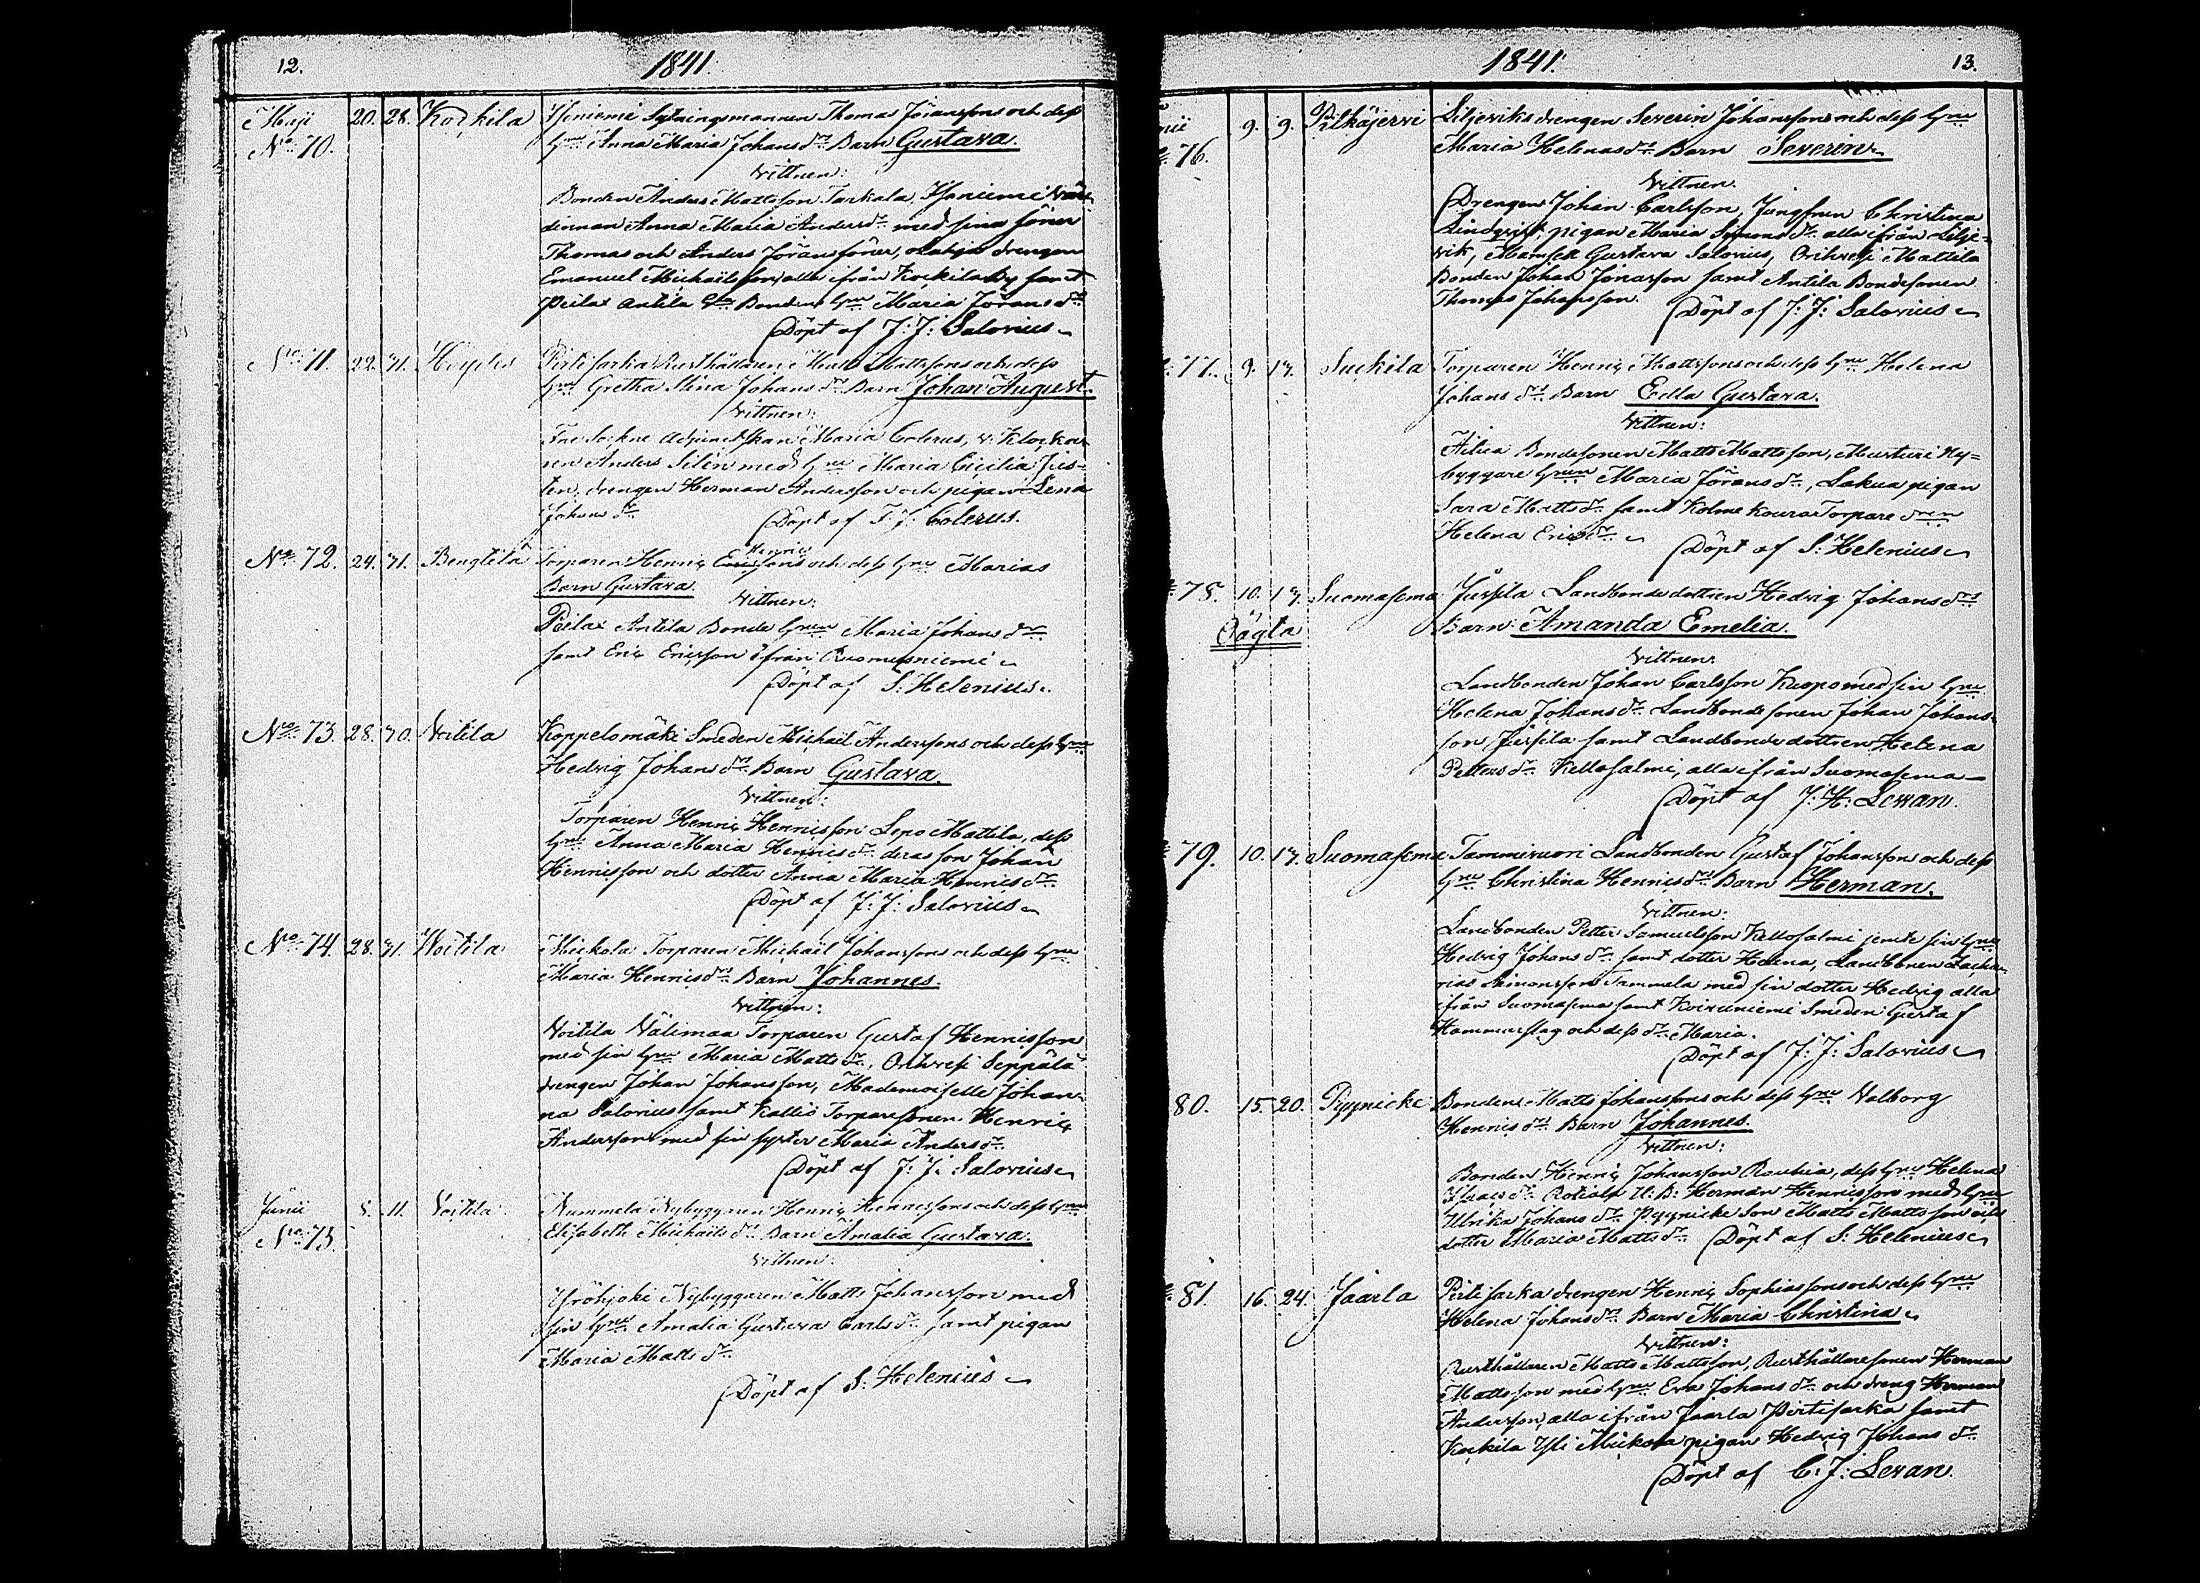 12. 1841.
Maji 20. 28. Kockila Yliniemi Sytningsmannen Thomas Jöranssons och dess
No 70. Hu Anna Maria Johans dr Barn Gustava.
Vittnen:
Bonden Anders Mattsson Tarkala, Yliniemi Vär-
dinnan Anna Maria Anders dr med sina söner
Thomas och Anders Jöranssöner, drengen
Emanuel Michaelsson, alla ifrån Kockila by samt
Peilax Antila Bondens Hu Maria Jörans dr
Döpt af J: J: Salovius
No 71. 22. 31. Pirtisarka Rusthållaren Matts Mattssons och dess
Hu Gretha Stina Johans dr Barn Johan August.
Vittnen:
Adjunctskan Maria Colerus, v. Klockar-
ren Anders Silén med Hu Maria Cicilia
drengen Herman Andersson och pigan Lena
Johans dr
Döpt af F. J. Colerus.
No 72. 24. 31. Bengtilä Torparen Henric Henricssons och dess Hu Marias
Barn Gustava.
Vittnen:
Peilax Antila Bonde Hun Maria Johans dr
samt Eric Ericsson ifrån Ruomisniemi
Döpt af S: Helenius
No 73. 28. 30. Voitila Koppelomäki Smeden Michaël Anderssons och dess Hu
Hedvig Johans dr Barn Gustava.
Vittnen:
Torparen Henric Henricsson Lepo Mattila, dess
Hu Anna Maria Henrics dr deras son Johan
Henricsson och dotter Anna Maria Henrics dr
Döpt af J: J: Salovius
No 74. 28. 31. Woitila Mickola Torparen Michaël Johanssons och dess Hu
Maria Henrics dr Barn Johannes.
Vittnen:
Voitila Välimaa Torparen Gustaf Henricsson
med sin Hu Maria Matts dr, Orihvesi Seppälä
drengen Johan Johansson, Mademoiselle Johan-
na Salovius samt Kallio Torparesonen Henric
Andersson med sin syster Maria Anders dr
Döpt af J: J: Salovius
Junii 5. 11. Voitila Nummela Nybyggaren Henric Henricssons och dess Hu
No 75. Elisabeth Michaels dr Barn Amalia Gustava.
Vittnen:
Nybyggaren Matts Johansson med
sin Hu Amalia Gustava Carls dr samt pigan
Maria Matts dr
Döpt af S: Helenius
1841. 13.
9. 9. Pitkäjervi Liljeviks drengen Severin Johanssons och dess Hu
76. Maria Helenas dr Barn Severin
Vittnen.
Drengen Johan Carlsson, Jungfrun Christina
Lindqvist, pigan Maria Simons dr alla ifrån Lilje-
vik, Mamsell Gustava Salovius, Orihvesi Mattila
Bonden Johan Jonasson samt Antila Bondesonen
Thomas Johansson.
Döpt af J: J: Salovius
77. 9. 13. Suckila Torparen Henric Mattssons och dess Hu Helena
Johans dr Barn Edla Gustava.
Vittnen:
Bondesonen Matts Mattsson, Musturi Ny-
byggare Hun Maria Jörans dr, Lakua pigan
Sara Matts dr samt Kolme koura Torpare dren
Helena Erics dr
Döpt af S: Helenius
78. 10. 13. Suomasema Jussila Landbonde dottren Hedvig Johans drs
Oägta Barn Amanda Emelia.
Vittnen.
Landbonden Johan Carlsson Kuopo med sin Hu
Helena Johans dr Landbonde sonen Johan Johans-
son Jussila samt Landbonde dottren Helena
Petters dr Kellosalmi, alla ifrån Suomasema
Döpt af J: H: Levan.
79. 10. 13. Suomasema Tammivuori Landbonden Gustaf Johanssons och dess
Hu Christina Henrics dr Barn Herman.
Vittnen:
Landbonden Petter Samuelsson Kellosalmi jemte sin Hu
Hedvig Johans dr samt dotter Helena, Landbonden Zacha-
rias Simonsson Tammela med sin dotter Hedvig alla
ifrån Suomasema samt Koivuniemi Smeden Gustaf
Hammarslag och dess dr Maria.
Döpt af J: J: Salovius
80. 15. 20. Pyynicke Bonden Matts Johanssons och dess Hu Valborg
Henrics dr Barn Johannes.
Vittnen:
Bonden Henric Johansson Rauhia, dess Hu Helena
Isaacs dr U: B: Herman Henricsson med Hu
Ulrika Johans dr Pyynicke Son Matts Mattsson och
dotter Maria Matts dr Döpt af S: Helenius
81. 16. 24. Jaarla Pirtisarka drengen Henric Sophiassons och dess Hu
Helena Johans dr Barn Maria Christina
Vittnen:
Rusthållaren Matts Mattsson, Rusthållaresonen Herman
Mattsson med Hu Eva Johans dr och dreng Herman
Andersson, alla ifrån Jaarla Pirtisarka samt
Kockila Yli Mickola pigan Hedvig Johans dr
Döpt af C: J: Levan.